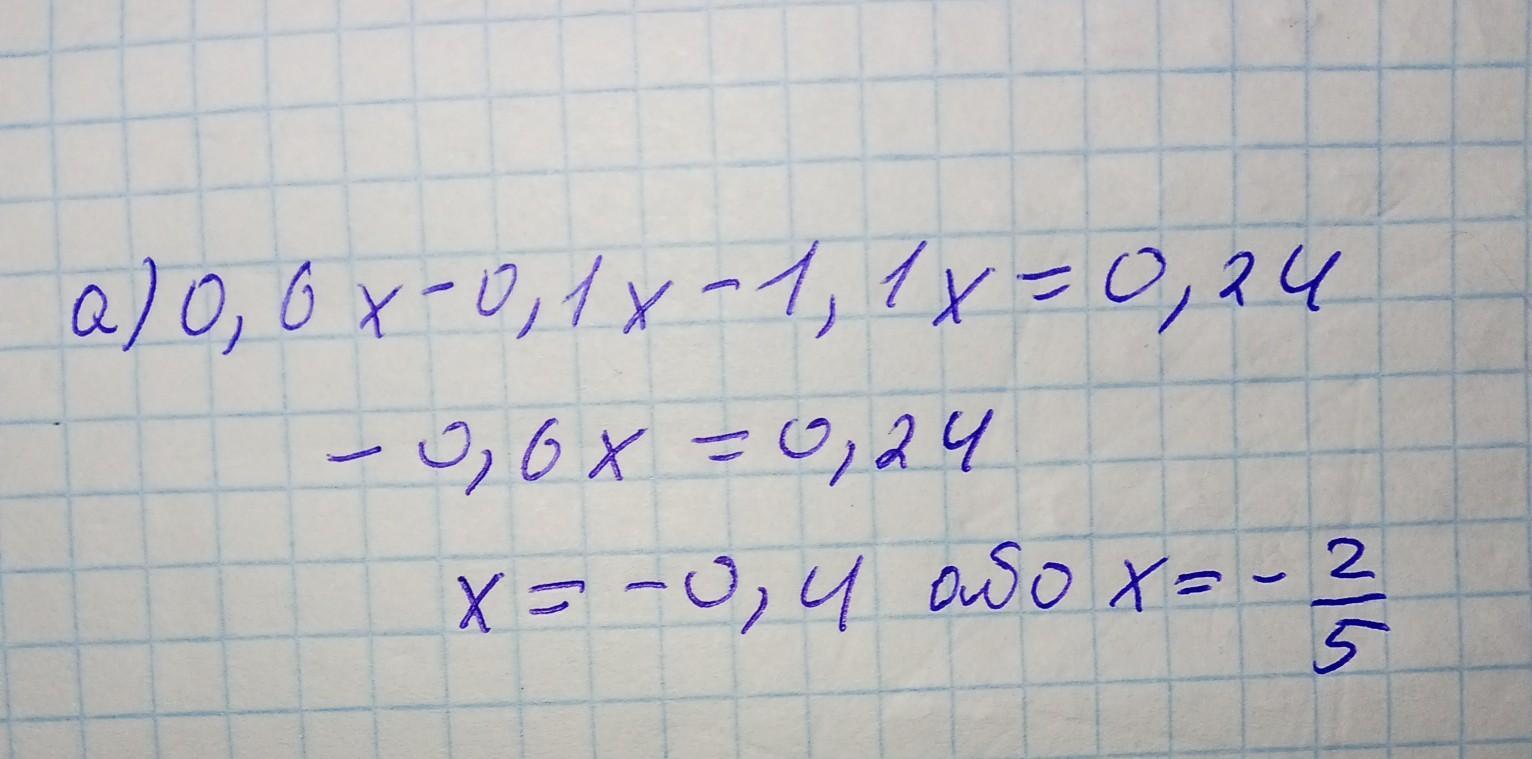 а) 0,6x - 0,1x - 1,1x = 0,24
- 0,6x = 0,24
x = - 0,4 або x = - 2/5